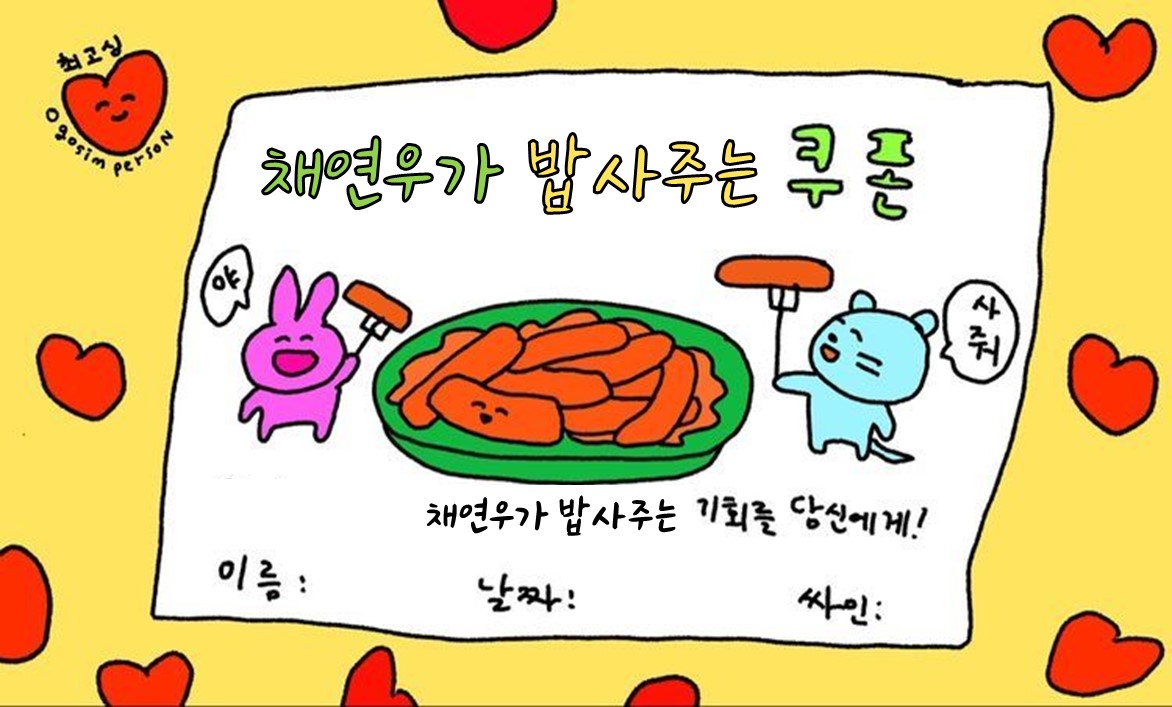 최고심
gosim person
채연우가 밥 사주는 쿠폰
야
사
줘
채연우가 밥 사주는 기회를 당신에게!
이름: 날짜: 싸인: